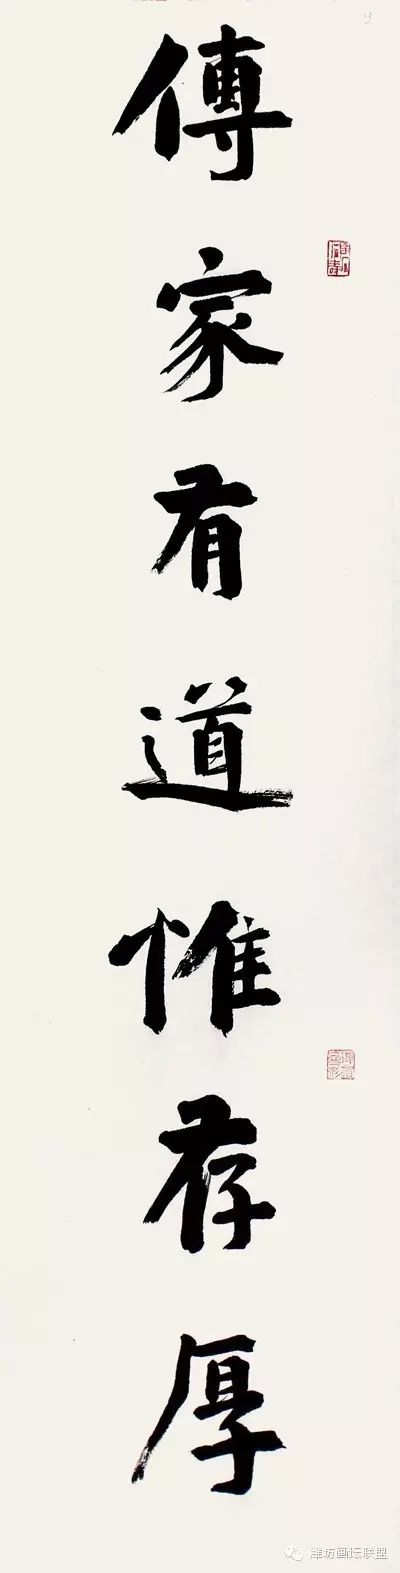 傳家有道惟存厚
潍坊画坛联盟